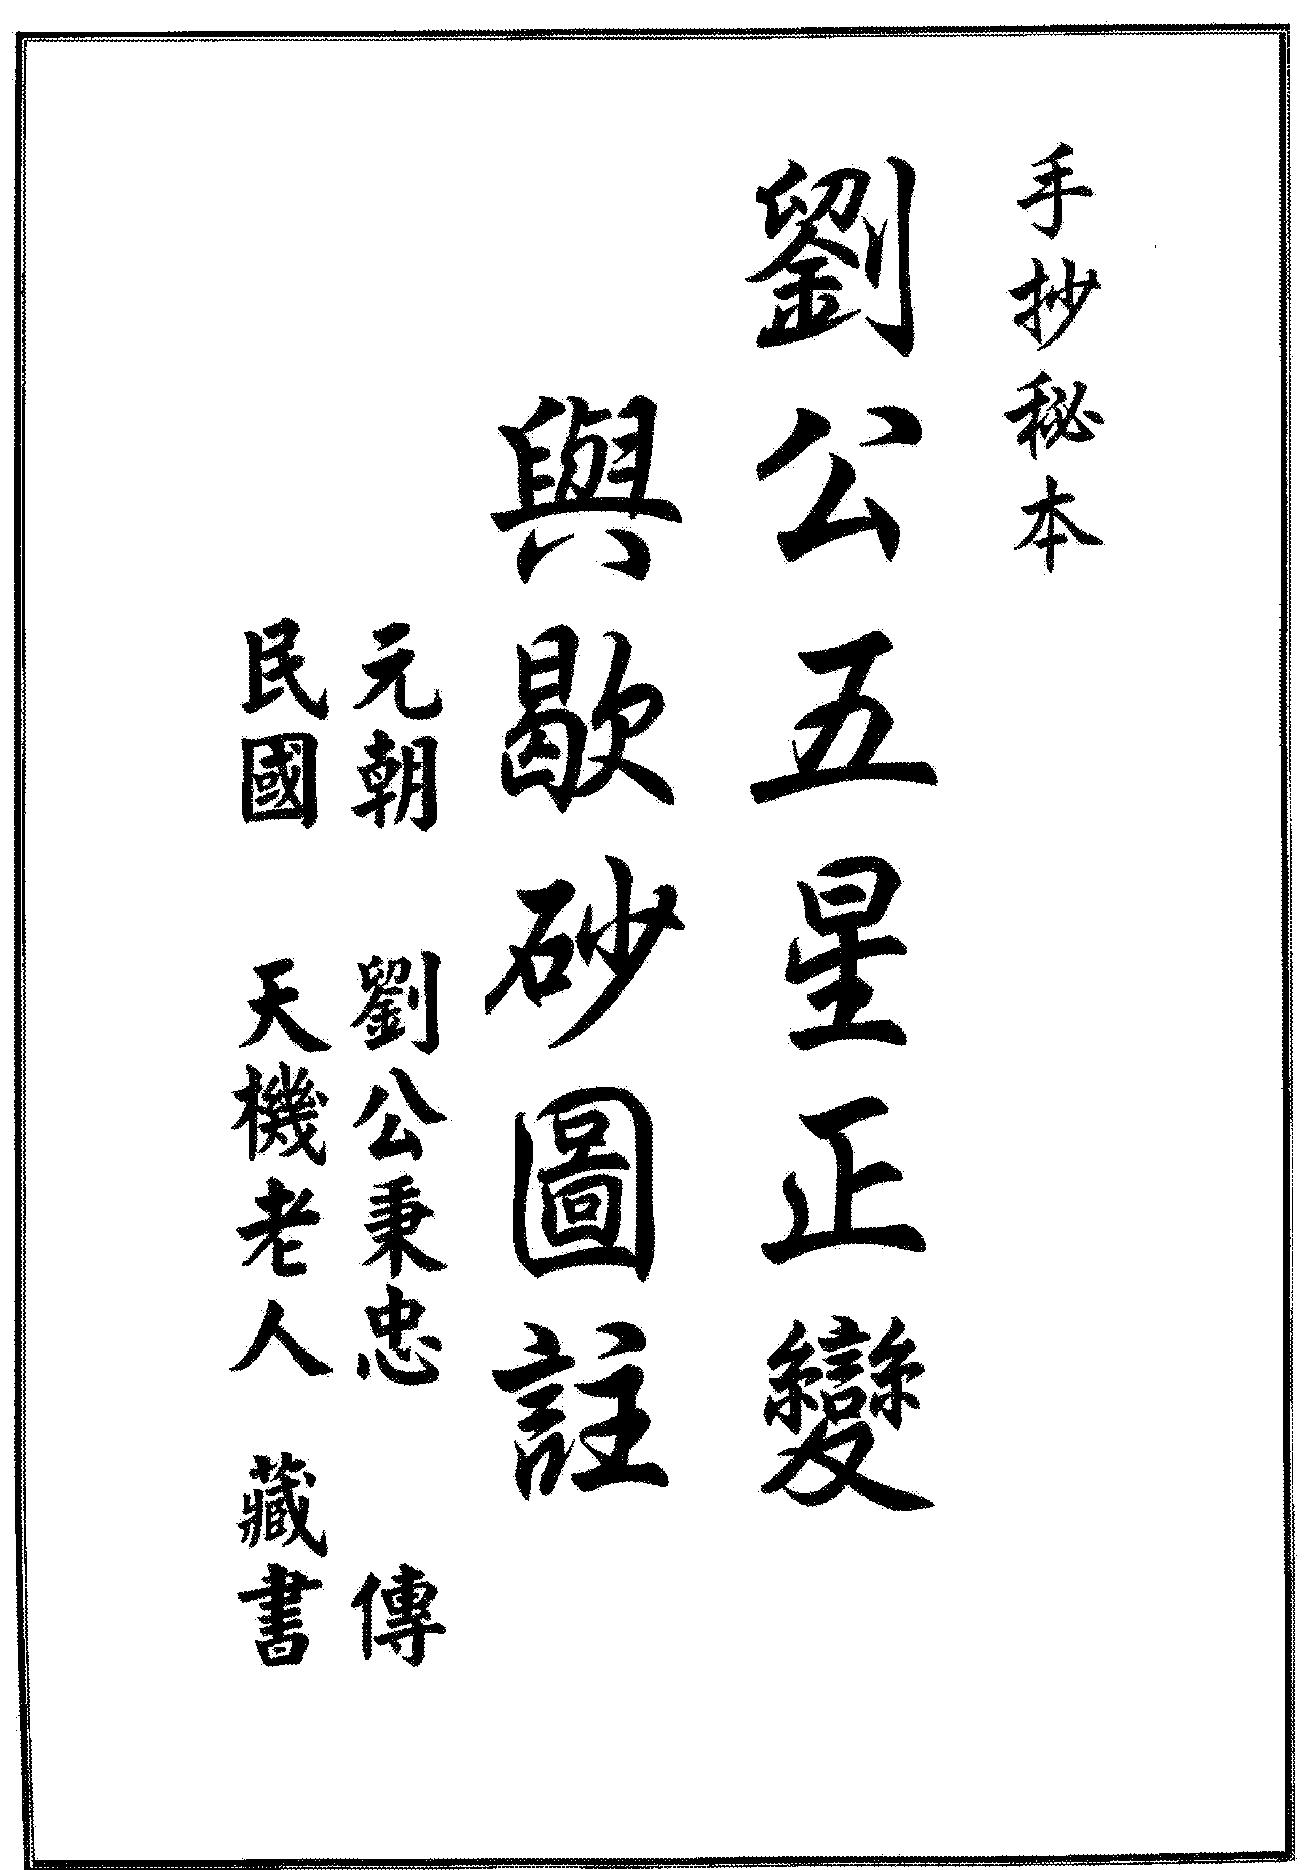 手抄秘本
劉公五星正變
與歇砂圖註
元朝　劉公秉忠　傳
民國　天機老人　藏書